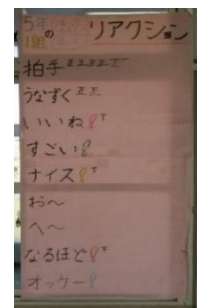 5年1組の リアクション
拍手 正正正正下
うなずく 正正
いいね!下
すごい!
ナイス!下
お〜
へ〜
なるほど!下
オッケー!